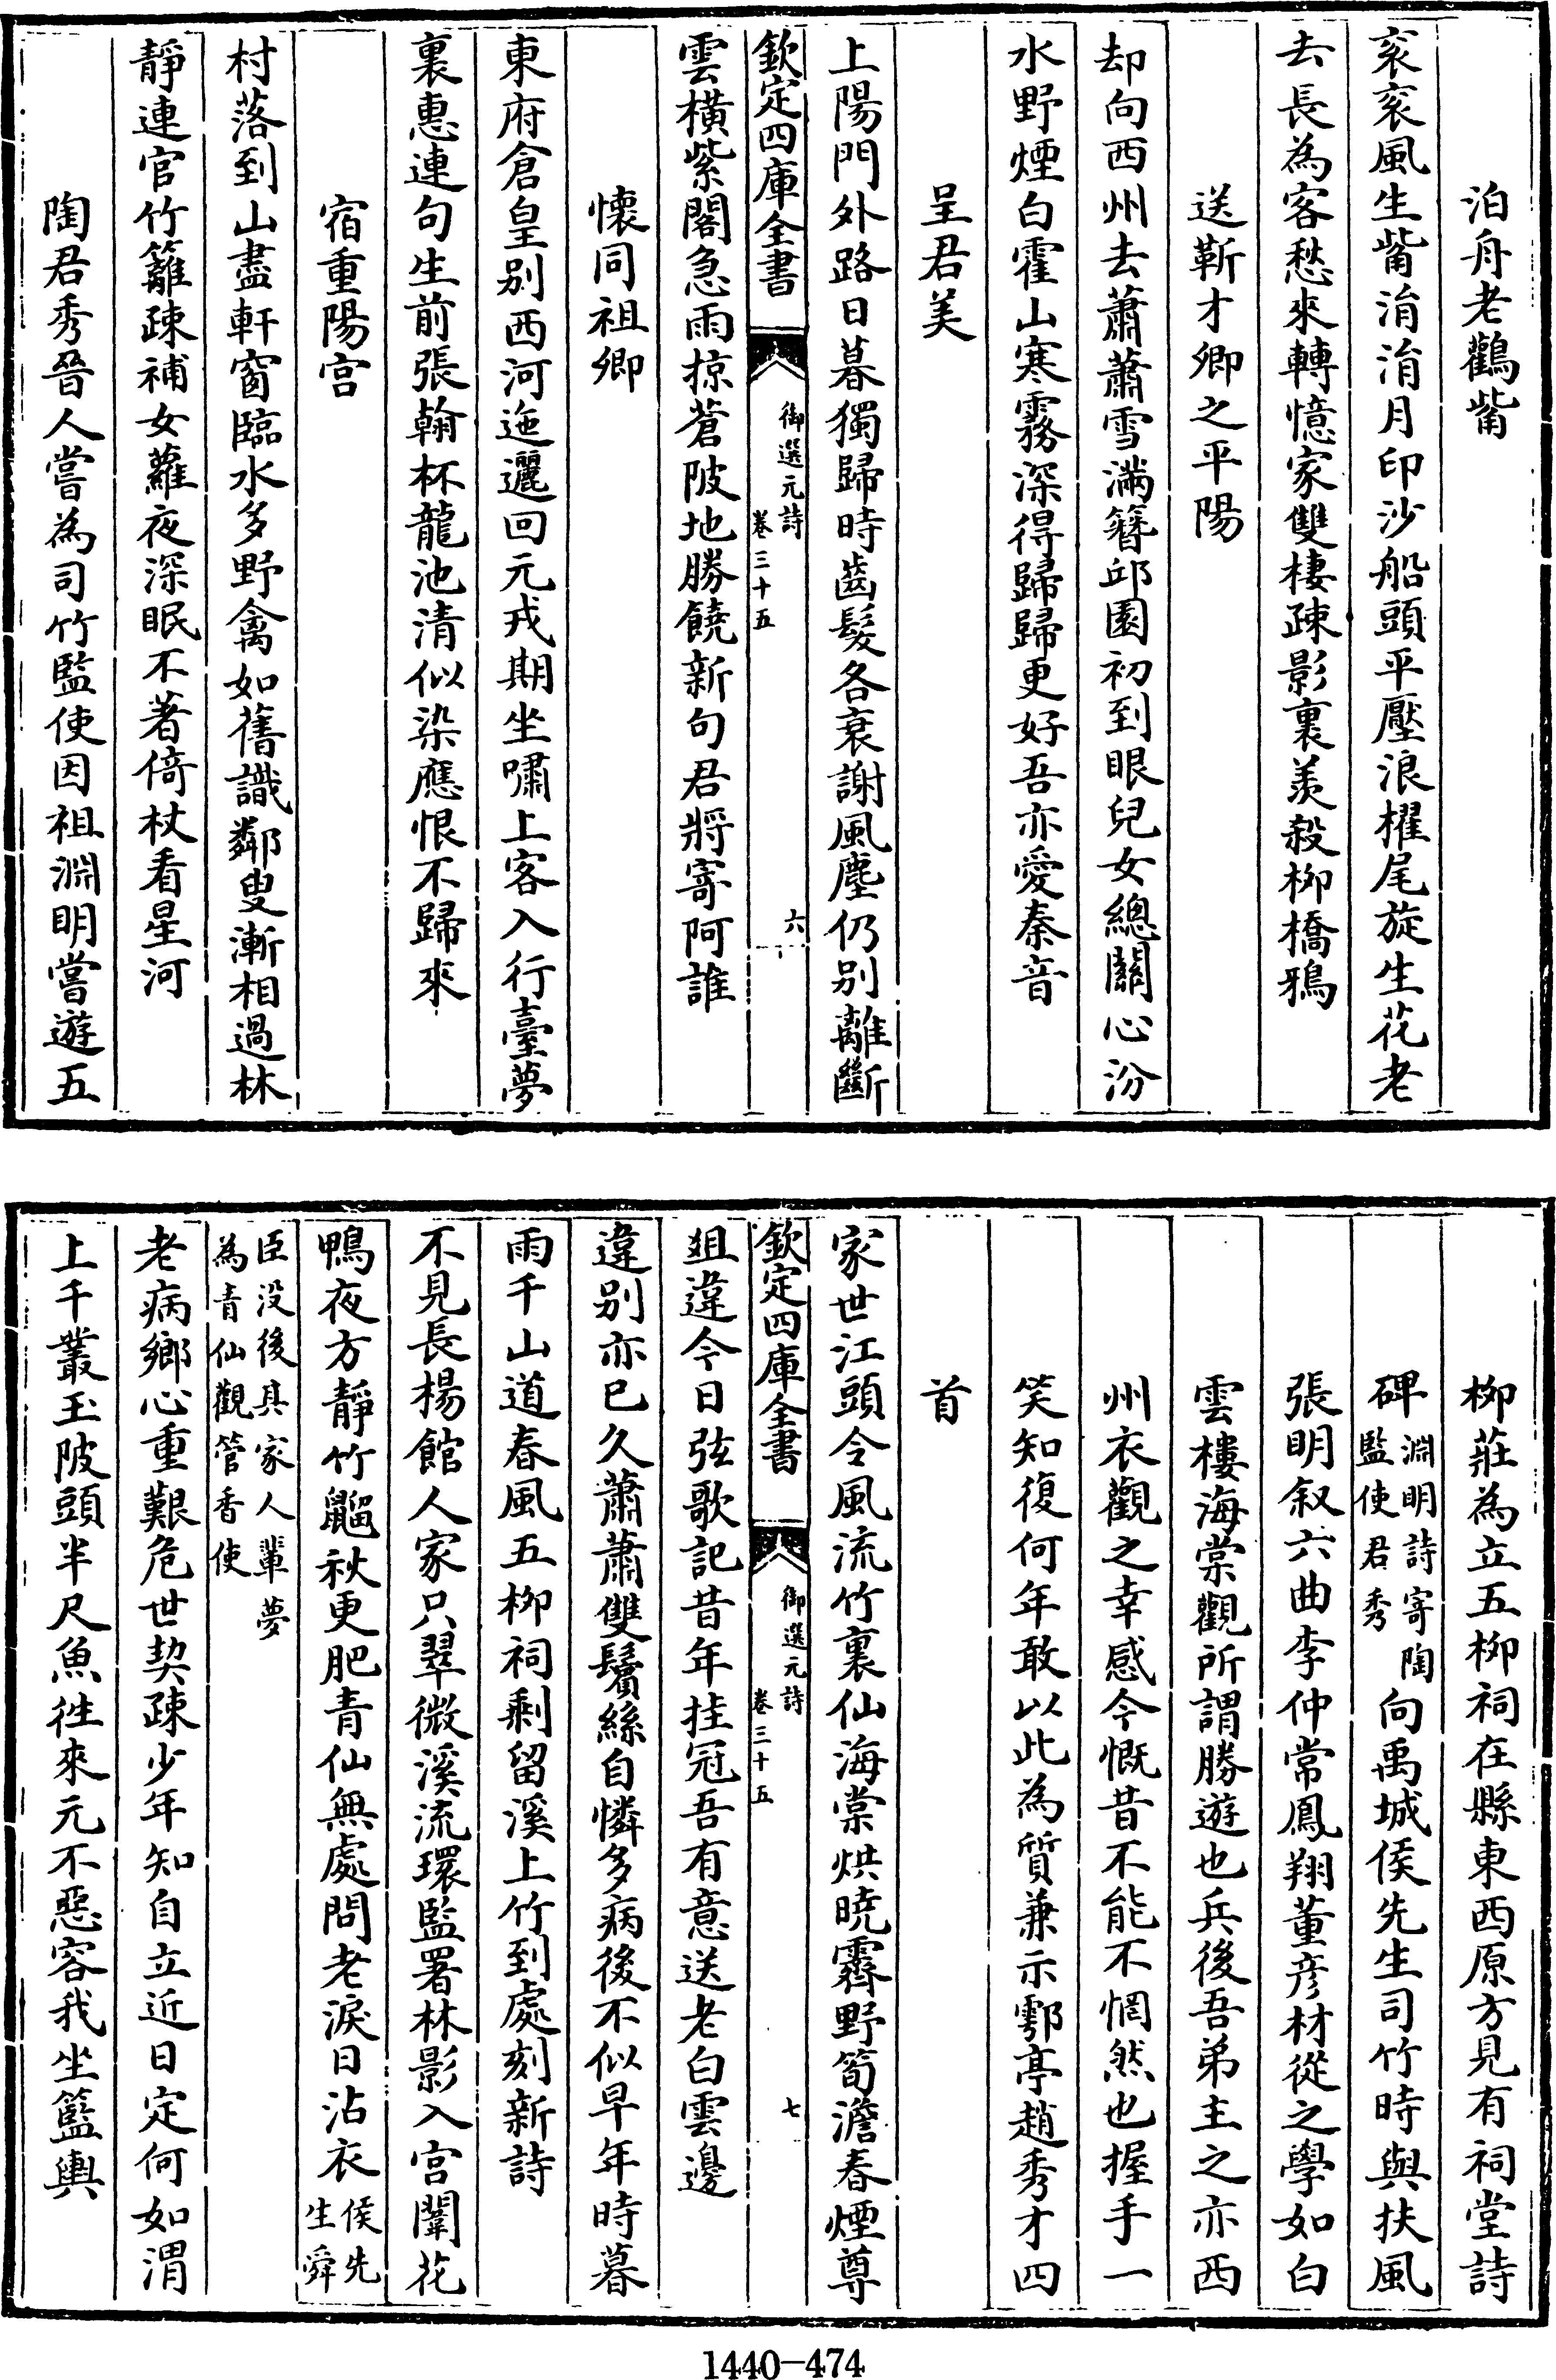 泊舟老鸛觜
衮衮風生觜涓涓月印沙船頭平壓浪櫂尾旋生花老
去長為客愁來轉憶家雙棲疎影裏羨殺柳橋鴉
送靳才卿之平陽
却向西州去蕭蕭雪滿簪邱園初到眼兒女總關心汾
水野煙白霍山寒霧深得歸歸更好吾亦愛秦音
呈君美
上陽門外路日暮獨歸時齒髮各衰謝風塵仍别離斷
欽定四庫全書
御選元詩
卷三十五
六
雲橫紫閣急雨掠蒼陂地勝饒新句君將寄阿誰
懷同祖卿
東府倉皇别西河迤邐回元戎期坐嘯上客入行臺夢
裏惠連句生前張翰杯龍池清似染應恨不歸來
宿重陽宫
村落到山盡軒窗臨水多野禽如舊識鄰叟漸相過林
靜連官竹籬疎補女蘿夜深眠不著倚杖看星河
陶君秀晉人嘗為司竹監使因祖淵明嘗遊五
柳莊為立五柳祠在縣東西原方見有祠堂詩
碑淵明詩寄陶監使君秀向禹城侯先生司竹時與扶風
張明叙六曲李仲常鳳翔董彦材從之學如白
雲樓海棠觀所謂勝遊也兵後吾弟主之亦西
州衣觀之幸感今慨昔不能不惘然也握手一
笑知復何年敢以此為質兼示鄠亭趙秀才四
首
家世江頭令風流竹裏仙海棠烘曉霽野筍澹春煙尊
欽定四庫全書
御選元詩
卷三十五
七
俎違今日弦歌記昔年挂冠吾有意送老白雲邊
違别亦已久蕭蕭雙鬢絲自憐多病後不似早年時暮
雨千山道春風五柳祠剩留溪上竹到處刻新詩
不見長楊館人家只翠微溪流環監署林影入宫闈花
鴨夜方靜竹鼯秋更肥青仙無處問老淚日沾衣侯先生舜
臣没後具家人輩夢為青仙觀管香使
老病鄉心重艱危世契疎少年知自立近日定何如渭
上千叢玉陂頭半尺魚往來元不惡容我坐籃輿
1440-474